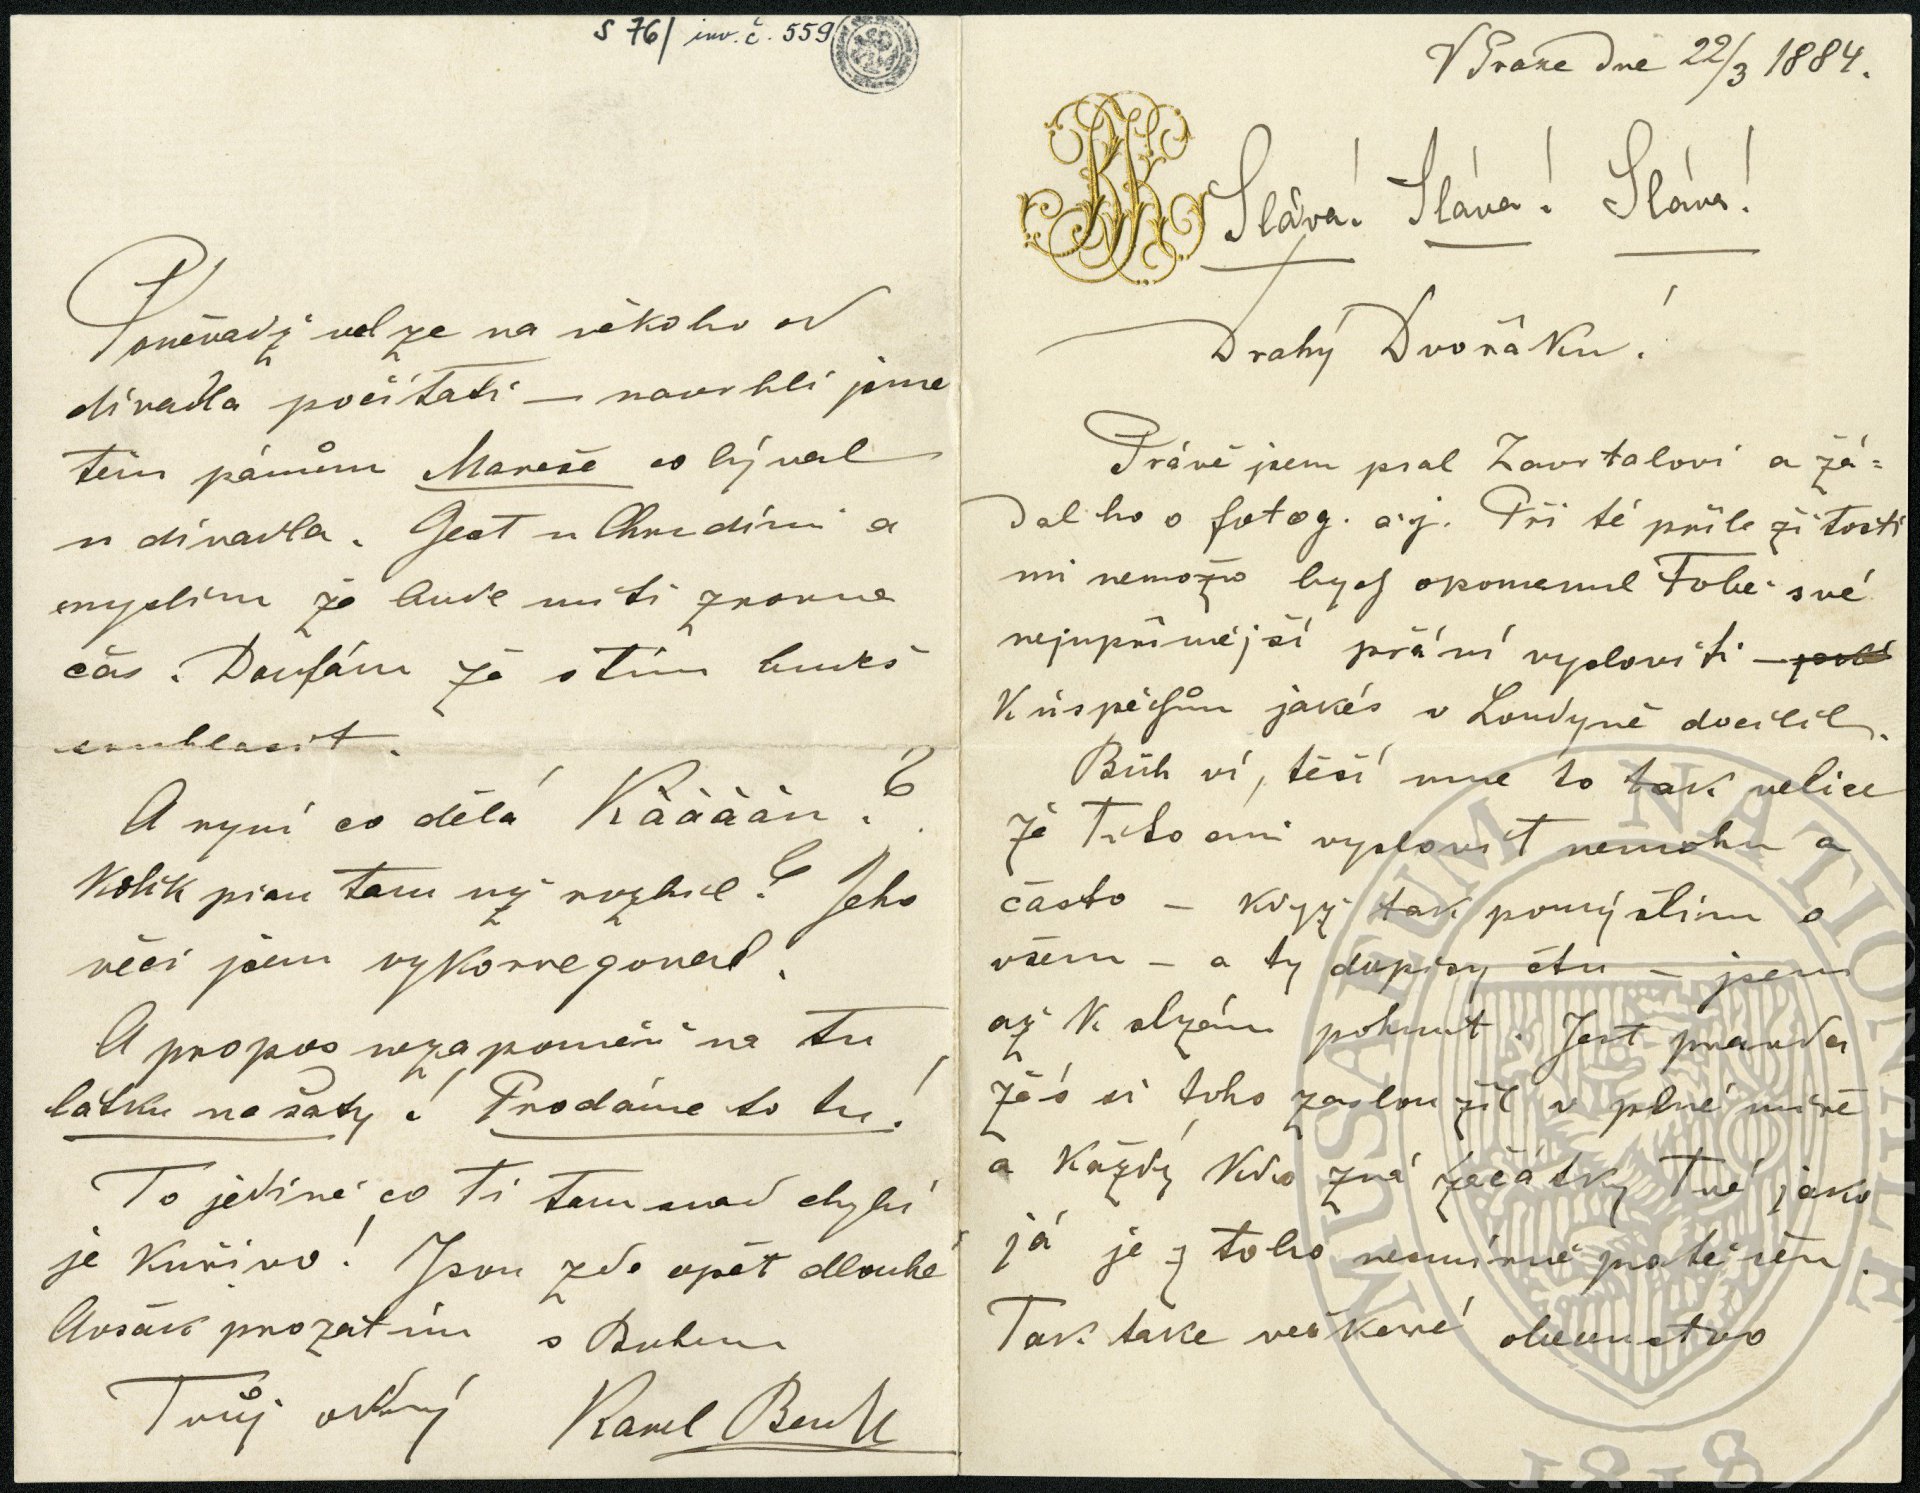 S 76/ inv. č. 559
V Praze dne 22/3 1884.
Sláva! Sláva! Sláva!
Drahý Dvořáku!
Právě jsem psal Zavrtalovi a žá=
dal ho o fotog. aj. Při té příležitosti
mi nemožno bych opomenul Tobě své
nejupřímější přání vysloviti —
K úspěchům jakés v Londýně docílil.
Bůh ví, těší mne to tak velice
že Ti to ani vyslovit nemohu a
často – když tak pomýšlím o
všem – a ty dopisy čtu – jsem
až k slzám pohnut. Jest pravda
žes si toho zasloužil v plné míře
a každý kdo zná začátky Tvé jako
já je z toho nesmírně potěšen.
Tak take veškeré obecenstvo
Poněvadž nelze na někoho od
divadla počítati – navrhli jsme
těm pánům Mareše co býval
u divadla. Jest v Chrudimi a
myslím že bude míti zrovna
čas. Doufám že s tím budeš
souhlasit.
A nyní co dělá Kàààán?
Kolik pian tam už rozbil? Jeho
věci jsem vykorregoval.
A propos nezapomeň na tu
látku na šaty! Prodáme to tu!
To jediné co Ti tam snad chybí
je Kuřivo! Jsou zde opět dlouhé
Avšak prozatím s Bohem
Tvůj oddaný Karel Bendl
MUSAEUM NATIONALE
1818